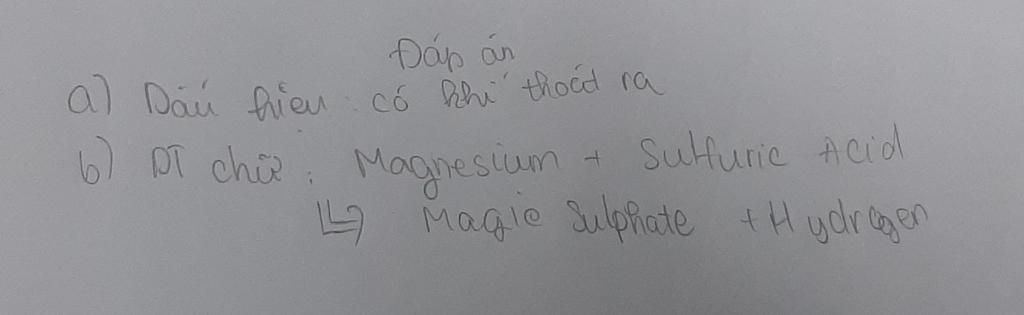 Đáp án
a) Dấu hiệu : có khí thoát ra
b) PT chữ : Magnesium + Sulfuric Acid
Magie Sulphate + Hydrogen